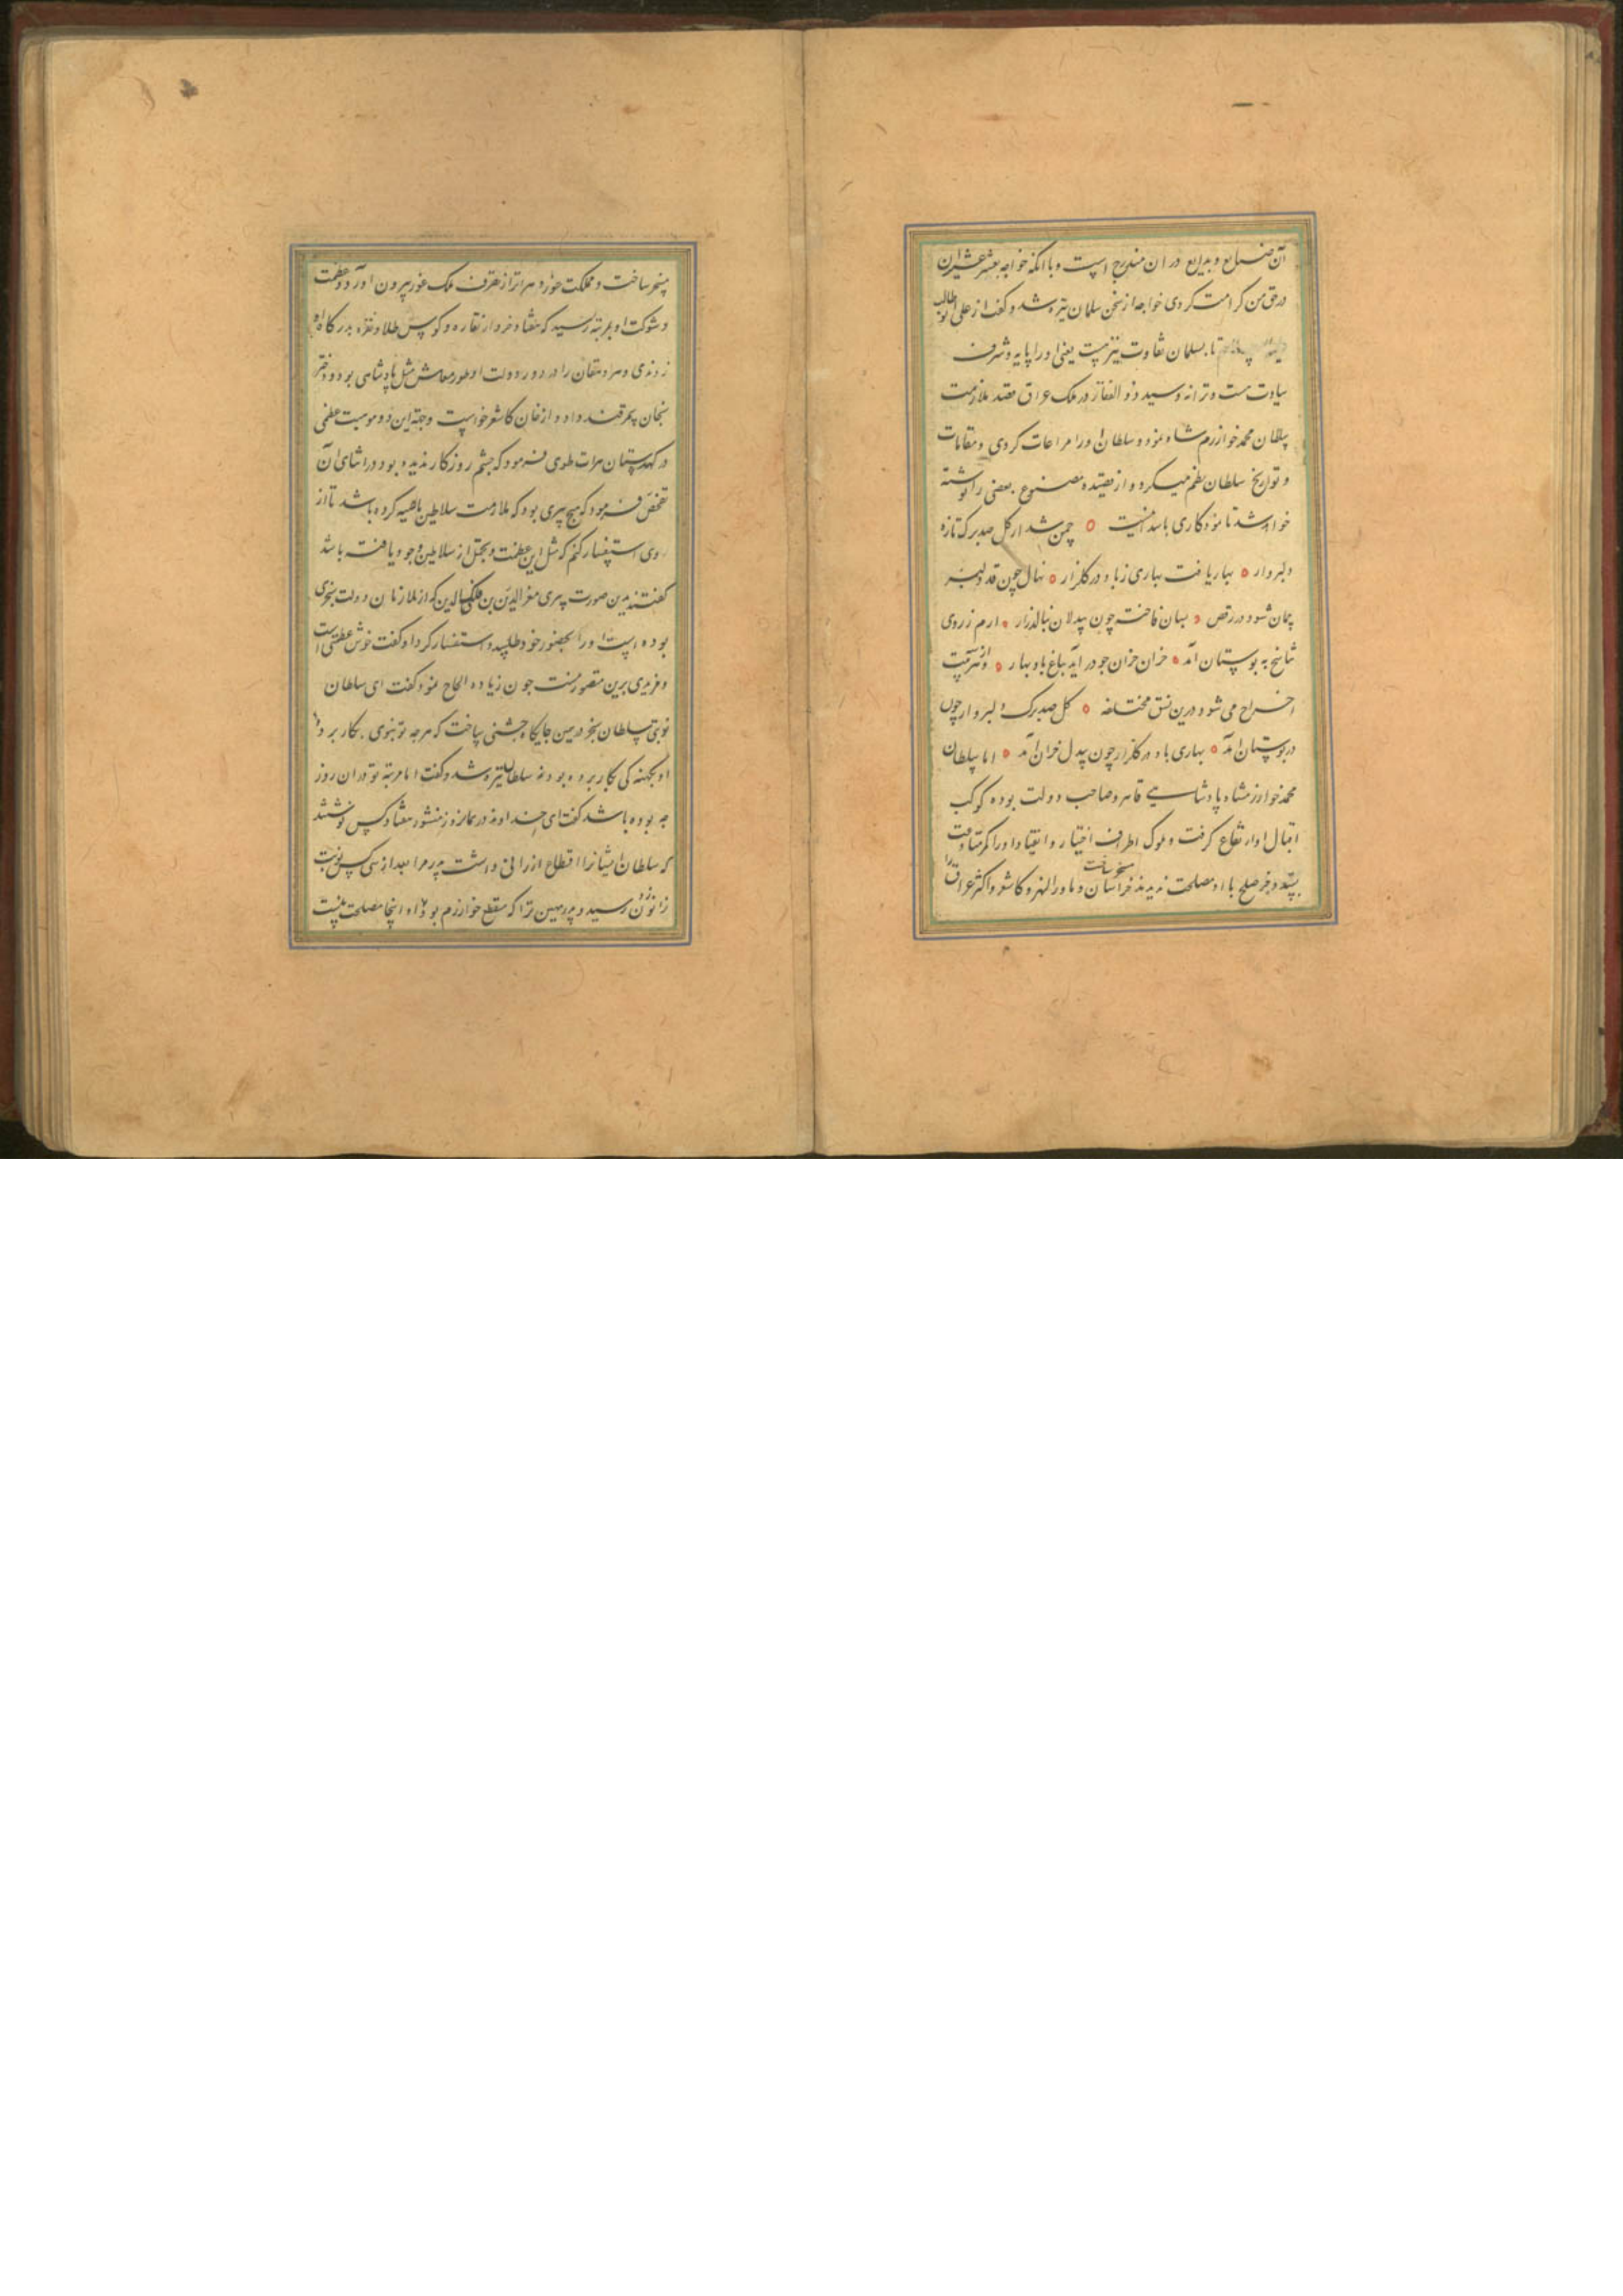 آن صنایع و بدایع در ان مندرج است و با انکه خواجه بعشر عشیر ان
در حق من کرامت کردی خواجه از سخن سلمان تیره شد و کفت از علی ابو طالب
تا بسلمان تفاوت نیز هست یعنی او را پایه و شرف
سیادت هست و ترا نه و سید ذو الفقار در ملک عراق مقصد ملازمت
سلطان محمد خوارزم شاه نمود و سلطان او را مراعات کردی و مقامات
و تواریخ سلطان نظم میکرد و از قصیده مصنوع بعضی را نوشته
خواهد شد تا نمودکاری باشد اینست ۵ چمن شد از کل صدبرک تازه
دلبروار ۵ بهار یافت بهاری ز باد در کلزار ۵ نهال چون قد دلبر
چمان شود در رقص ۵ بسان فاخته چون بیدلان بنالد زار ۵ ارم ز روی
شاخ به بوستان آمد ۵ خزان خزان چو در آید بباغ باد بهار ۵
اخراج می شود درین نسق مختلفه ۵ کل صدبرک دلبروار چون
در بوستان آمد ۵ بهاری باد در کلزار چون بیدل خزان آمد ۵ اما سلطان
محمد خوارزمشاه پادشاهی قاهر و صاحب دولت بوده کوکب
اقبال او ارتفاع کرفت و ملوک اطراف اختیار و انقیاد او را کمر متابعت
بستند و جز صلح با او مصلحت ندیدند خراسان و ماورالنهر و کاشغر و اکثر عراق را
مسخر ساخت
مسخر ساخت و مملکت حوزه و هراة از تصرف ملک غور بیرون آورد و عظمت
و شوکت او بمرتبه رسید که هفتاد خروار نقاره و کوس طلا و نقره بدرکاه او
زدندی و هر دهقان را در دور دولت او طور معاش مثل پادشاهی بود و دختر
بخان سمرقند داد و از خان کاشغر خواست و جهة این دو موهبت عظمی
در کهدستان هرات طوی فرمود که چشم روزکار ندیده بود در اثنای آن
تفحص فرمود که هیچ پیری بود که ملازمت سلاطین ماضیه کرده باشد تا از
وی استفسار کنم که مثل این عظمت و تجمل از سلاطین وجود یافته باشد
کفتند بدین صورت پیری معز الدین بن فلک الدین که از ملازمان دولت سنجری
بوده است او را بحضور خود طلبید و استفسار کرد او کفت خوش عظمتی است
و مزیدی برین متصور نیست چون زیاده الحاح نمود کفت ای سلطان
نوبتی سلطان سنجر درین جایکاه جشنی ساخت که هرچه تو بنوی بکار برده
او بکهنه کی بکار برده بود سلطان تیره شد و کفت اما مرتبه تو در ان روز
چه بوده باشد کفت ای خداوند در همان روز منشور هفتاد کس نوشتند
که سلطان ایشانرا اقطاع ارزانی داشت پدر مرا بعد از سی کس نوبت
زانو زدن رسید و پدر همین ترا که مقطع خوارزم بود او اینجا مصلحت نیست